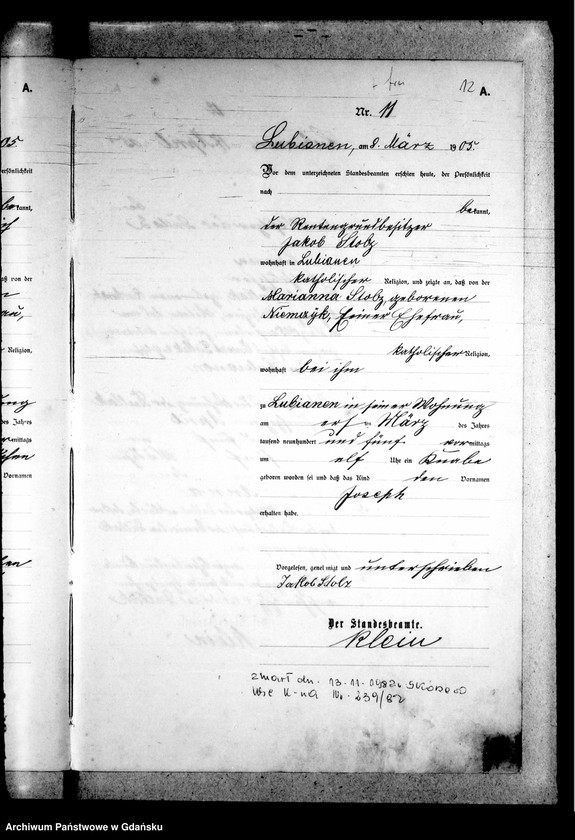 A.
12 A.
Nr. 11
Lubianen, am 8. März 1905.
Vor dem unterzeichneten Standesbeamten erschien heute, der Persönlichkeit
nach
bekannt,
der Rentengrundbesitzer
Jakob Stolz
wohnhaft in Lubianen
katholischer Religion, und zeigte an, daß von der
Marianna Stolz geborenen
Niemzyk, seiner Ehefrau,
katholischer Religion,
wohnhaft bei ihm
zu Lubianen in seiner Wohnung
am März des Jahres
tausend neunhundert und fünf vormittags
um elf Uhr ein Knabe
geboren worden sei und daß das Kind den Vornamen
Joseph
erhalten habe.
Vorgelesen, genehmigt und unterschrieben
Jakob Stolz
Der Standesbeamte.
Klein
05
ersönlichkeit
kannt,
aß von der
Religion,
des Jahres
mittags
Vornamen
zmarł dn. 13-11-1982
Nr 239/82
Archiwum Państwowe w Gdańsku